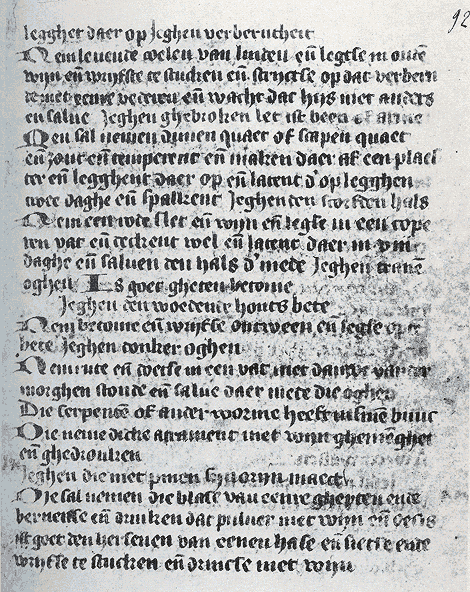 92
legghet daer op Jeghen verberntheit
Nem levende colen van linden en̄ legtse in ouden
wijn en̄ wrijfse te stucken en̄ strijctse op dat verbern
te met eenre vederen en̄ wacht dat hijs niet anders
en salve Jeghen ghebroken let ist been of arme
Men sal nemen druven quaet of scapen quaet
en̄ zout en̄ temperent en̄ maken daer af een plaes
ter en̄ legghent daer op en̄ latent d'op legghen
twee daghe en̄ spalkent Jeghen den hals
Nem een wit slet en̄ wijn en̄ legse in een cope
ren vat en̄ deckent wel en̄ latent daer in viii
daghe en̄ salven den hals d'mede Jeghen tranē
oghen Es goet gheten betonie
Jeghen den woedende honts bete
Nem betonie en̄ wrijfse ontween en̄ legse op die
bete Jeghen donker oghen
Nem rute en̄ doetse in een vat met dauwe van der
morghen stonde en̄ salve daer mede die oghen
Die serpense of ander worme heeft in sinen buuc
Die neme dicke atrament met wijn ghemenghet
en̄ ghedronken
Jeghen die met pinen orijn maect
Die sal nemen die blase van eenre gheyten ende
bernense en̄ drinken dat pulver met wijn en̄ oec is
goet den hersenen van eenen hase en̄ sietse ende
wrijfse te stucken en̄ drincse met wijn